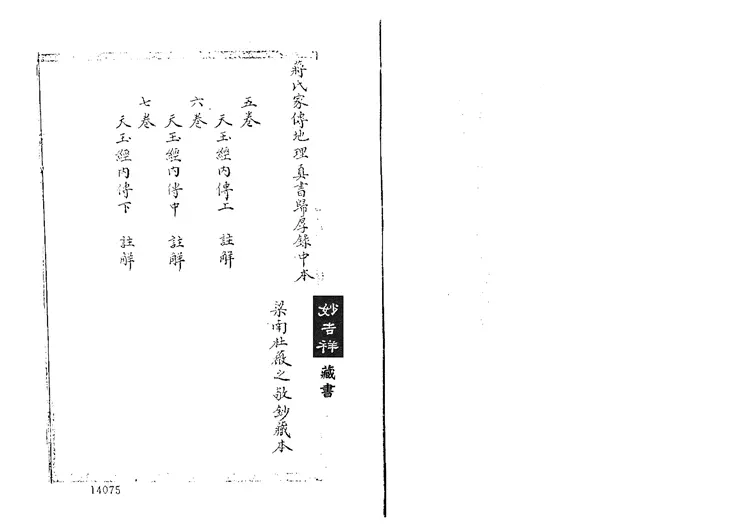 蔣氏家傳地理真書歸厚錄中本
五卷
天玉經內傳上 註解
六卷
天玉經內傳中 註解
七卷
天玉經內傳下 註解
梁南杜薇之敬鈔藏本
妙吉祥
藏書
14075